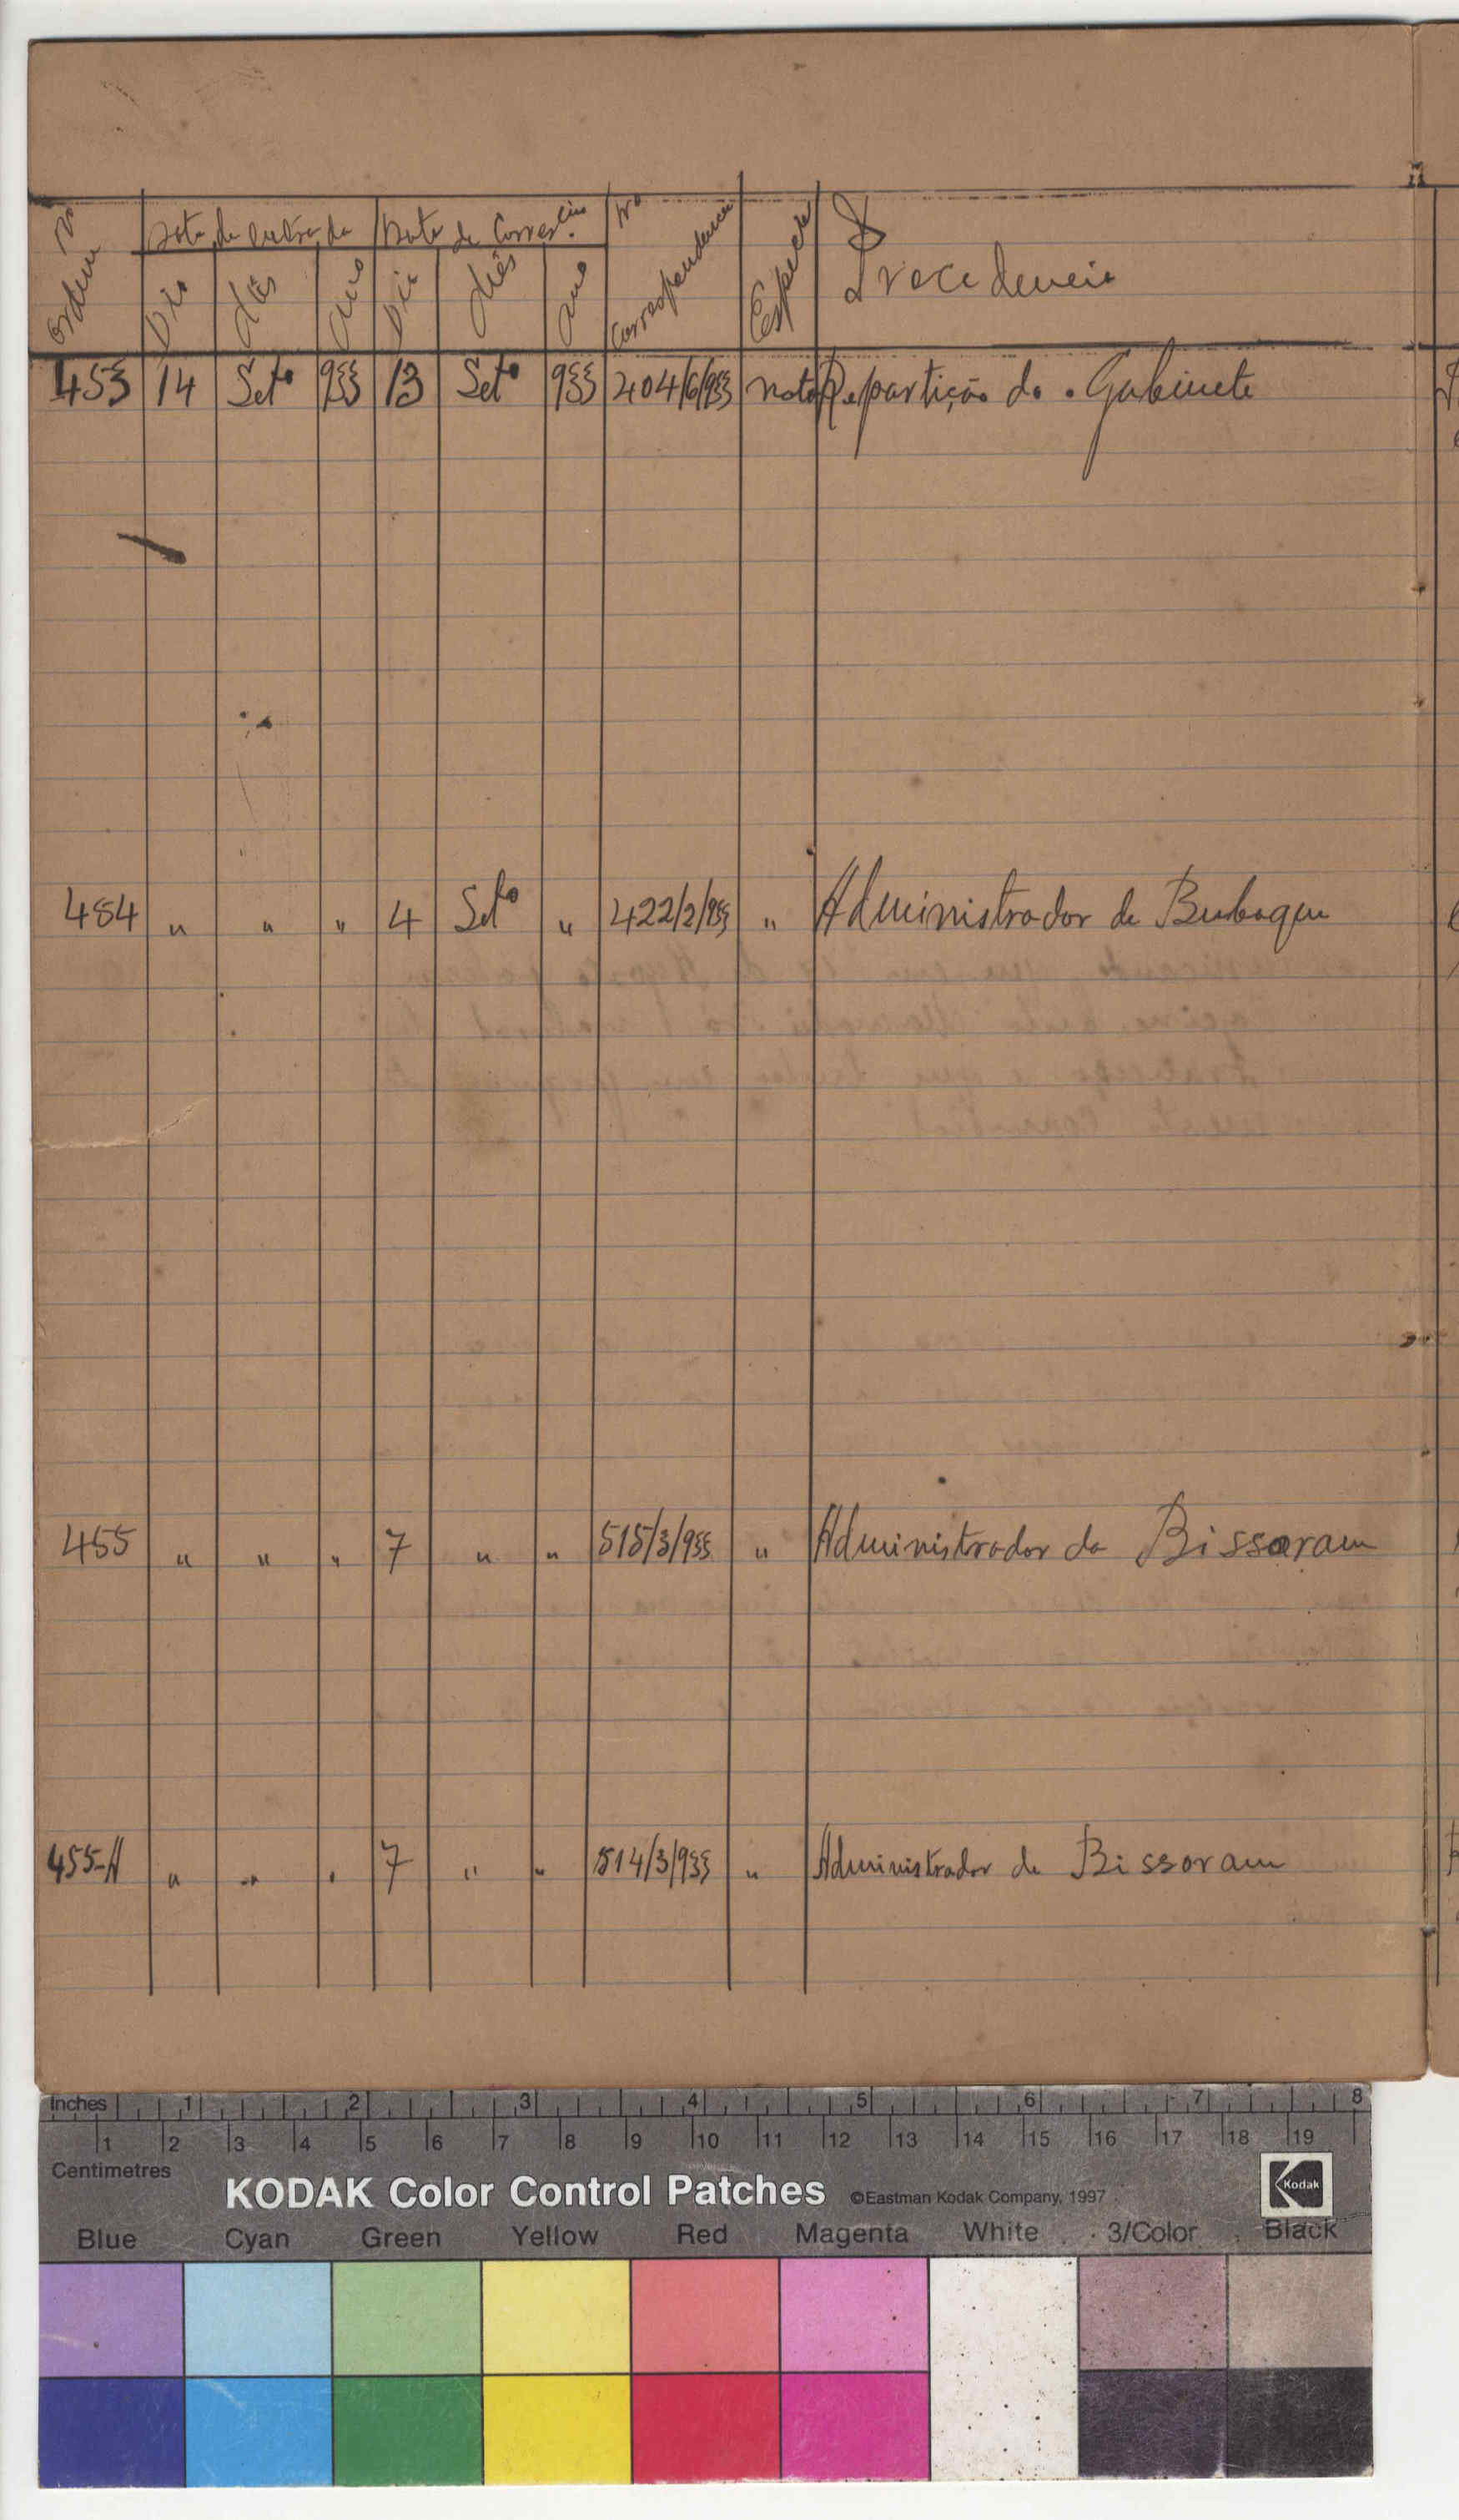 Nº Ordem Data de entrada Data de Corresp.cia Nº Correspondencia Especie Procedencia
Dia Mês Ano Dia Mês Ano
453 14 Setº 933 13 Setº 933 404/6/933 nota Repartição do Gabinete
484 " " " 4 Setº " 422/2/933 " Administrador de Bubaque
455 " " " 7 " " 515/3/933 " Administrador da Bissoram
455-A " " " 7 " " 514/3/933 " Administrador de Bissoram
Inches 1 2 3 4 5 6 7 8
1 2 3 4 5 6 7 8 9 10 11 12 13 14 15 16 17 18 19
Centimetres
KODAK Color Control Patches ©Eastman Kodak Company, 1997 Kodak
Blue Cyan Green Yellow Red Magenta White 3/Color Black